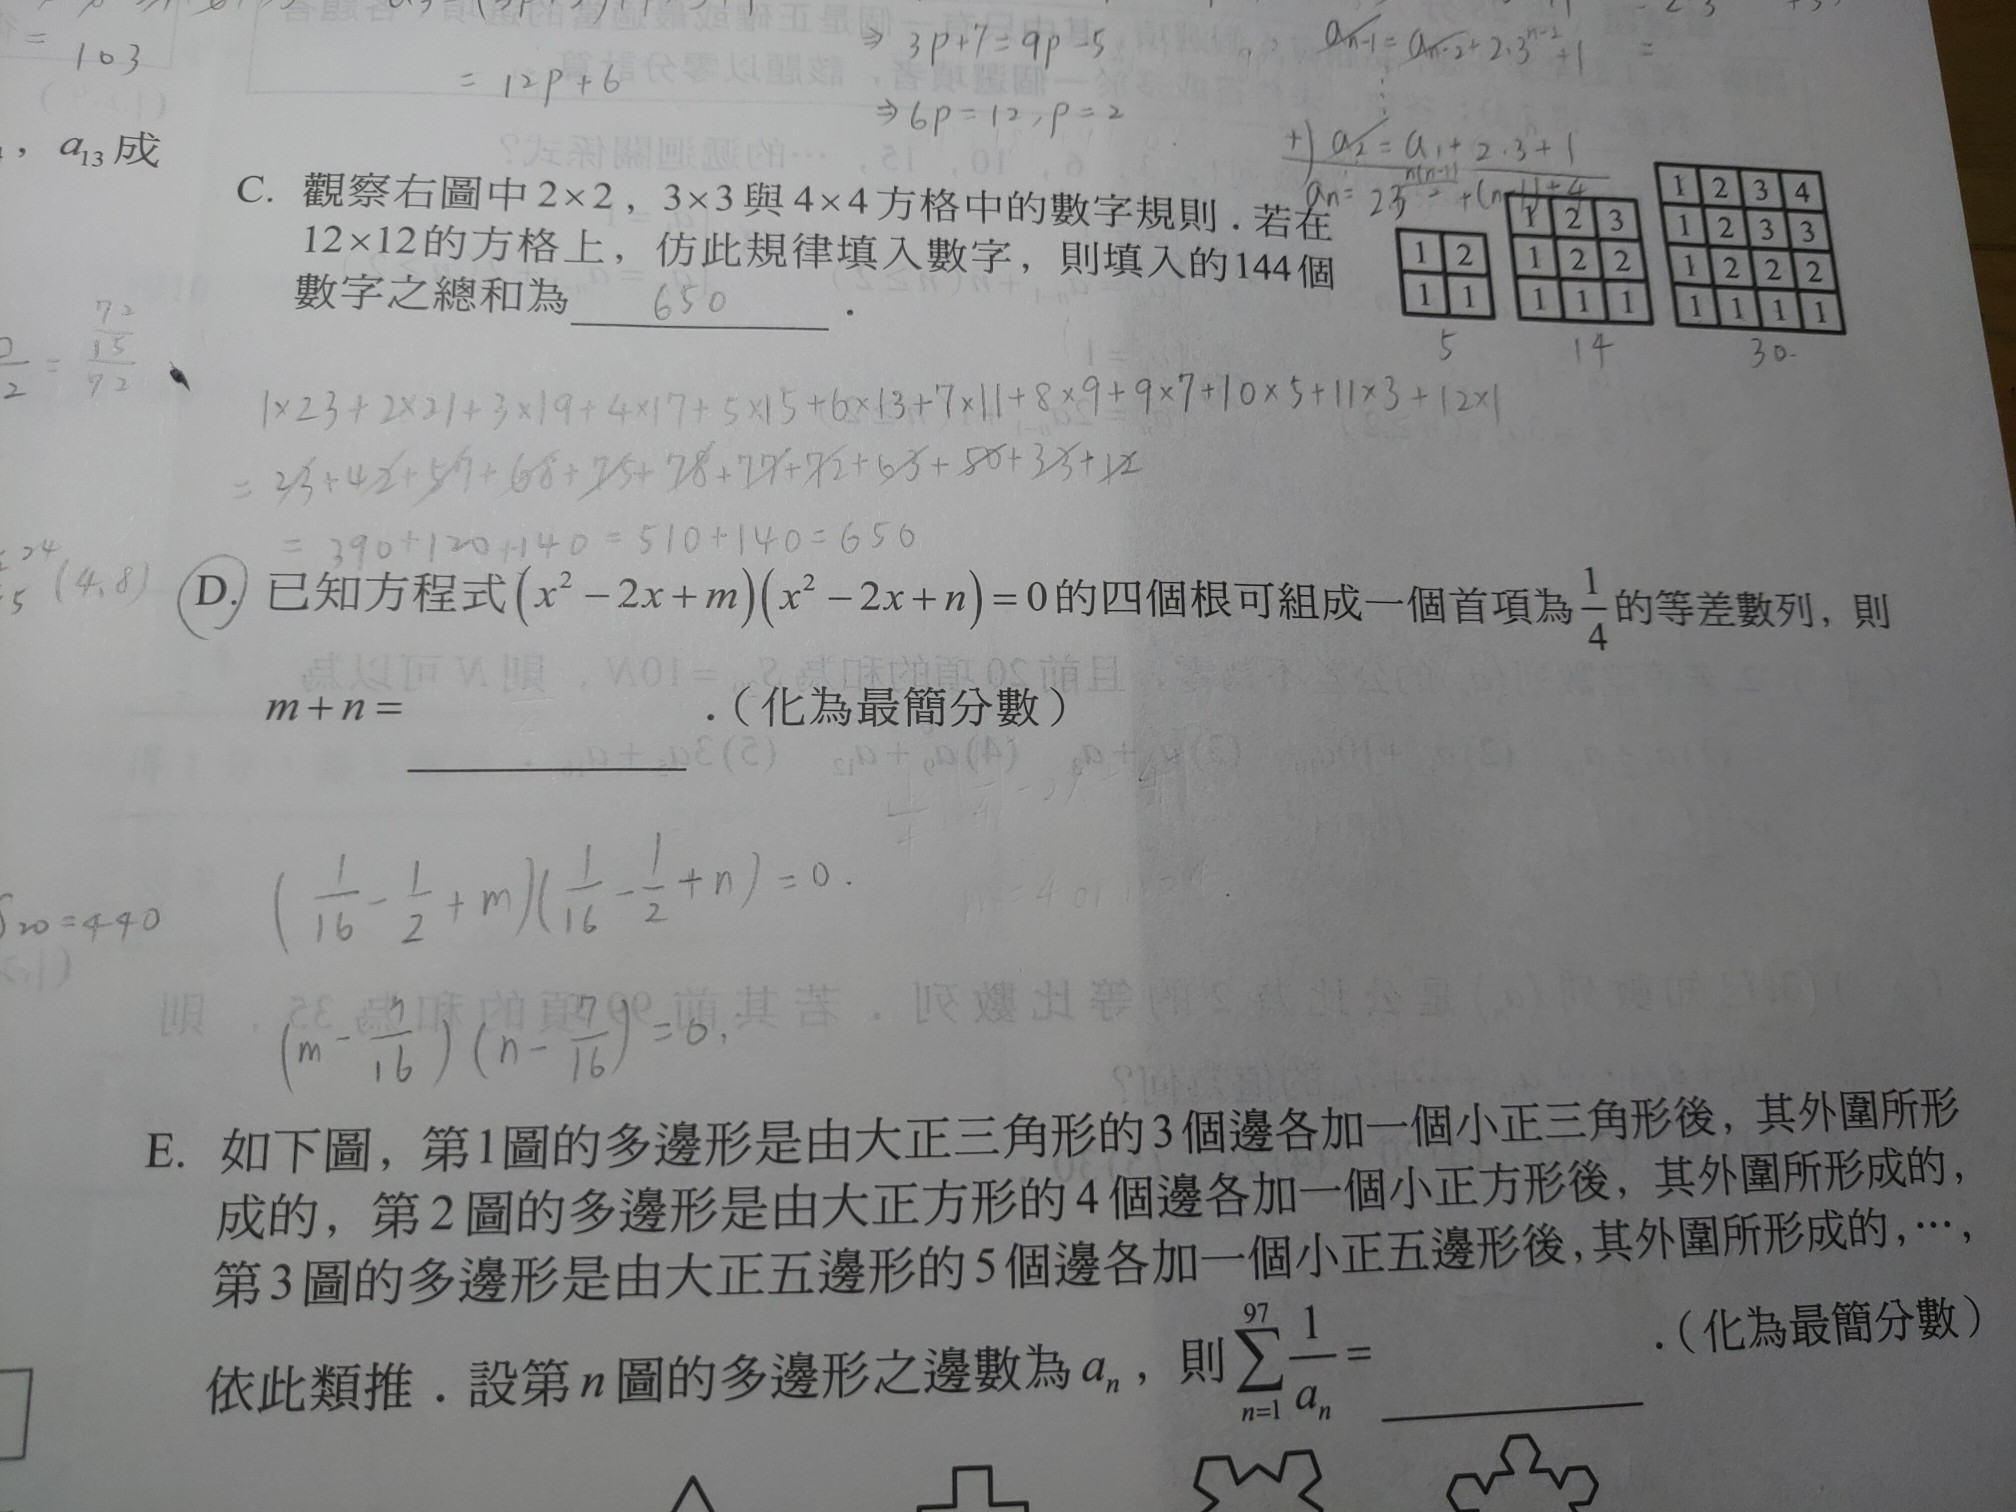 = 103
= 12p+6
⇒ 3p+7=9p-5
⇒ 6p=12, p=2
aₙ₋₁ = aₙ₋₂+2·3ⁿ⁻²+1 =
+) a₂ = a₁+2·3+1
，a₁₃成
C. 觀察右圖中2×2，3×3與4×4方格中的數字規則．若在
12×12的方格上，仿此規律填入數字，則填入的144個
數字之總和為 650 ．
1 2
1 1
5
1 2 3
1 2 2
1 1 1
14
1 2 3 4
1 2 3 3
1 2 2 2
1 1 1 1
30
1×23+2×21+3×19+4×17+5×15+6×13+7×11+8×9+9×7+10×5+11×3+12×1
= 23+42+57+68+75+78+77+72+63+50+33+12
= 390+120+140=510+140=650
(4,8)
D. 已知方程式(x²－2x+m)(x²－2x+n)=0的四個根可組成一個首項為1/4的等差數列，則
m+n= ．（化為最簡分數）
(1/16-1/2+m)(1/16-1/2+n)=0.
S₂₀=440
(m-7/16)(n-7/16)=0,
E. 如下圖，第1圖的多邊形是由大正三角形的3個邊各加一個小正三角形後，其外圍所形
成的，第2圖的多邊形是由大正方形的4個邊各加一個小正方形後，其外圍所形成的，
第3圖的多邊形是由大正五邊形的5個邊各加一個小正五邊形後，其外圍所形成的，…，
依此類推．設第n圖的多邊形之邊數為aₙ，則∑ₙ₌₁⁹⁷ 1/aₙ= ．（化為最簡分數）